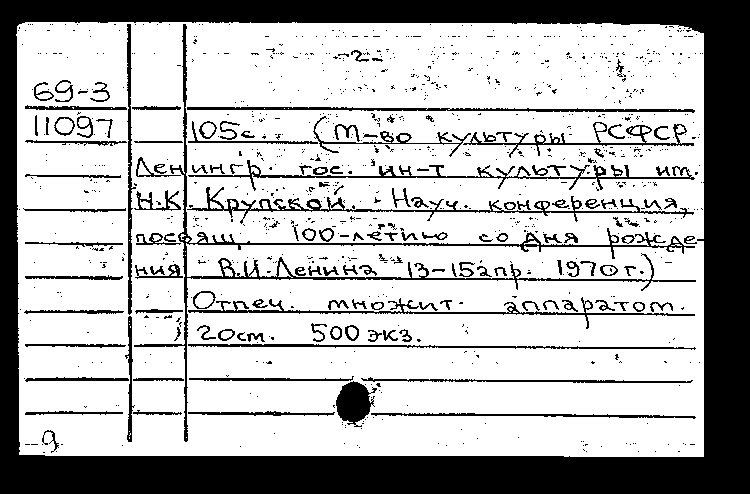 -2-
69-3
11097 105с. (М-во культуры РСФСР.
Ленингр. гос. ин-т культуры им.
Н.К. Крупской. Науч. конференция,
посвящ. 100-летию со дня рожде-
ния В.И. Ленина 13-15 апр. 1970 г.)
Отпеч. множит. аппаратом.
20см. 500 экз.
-9